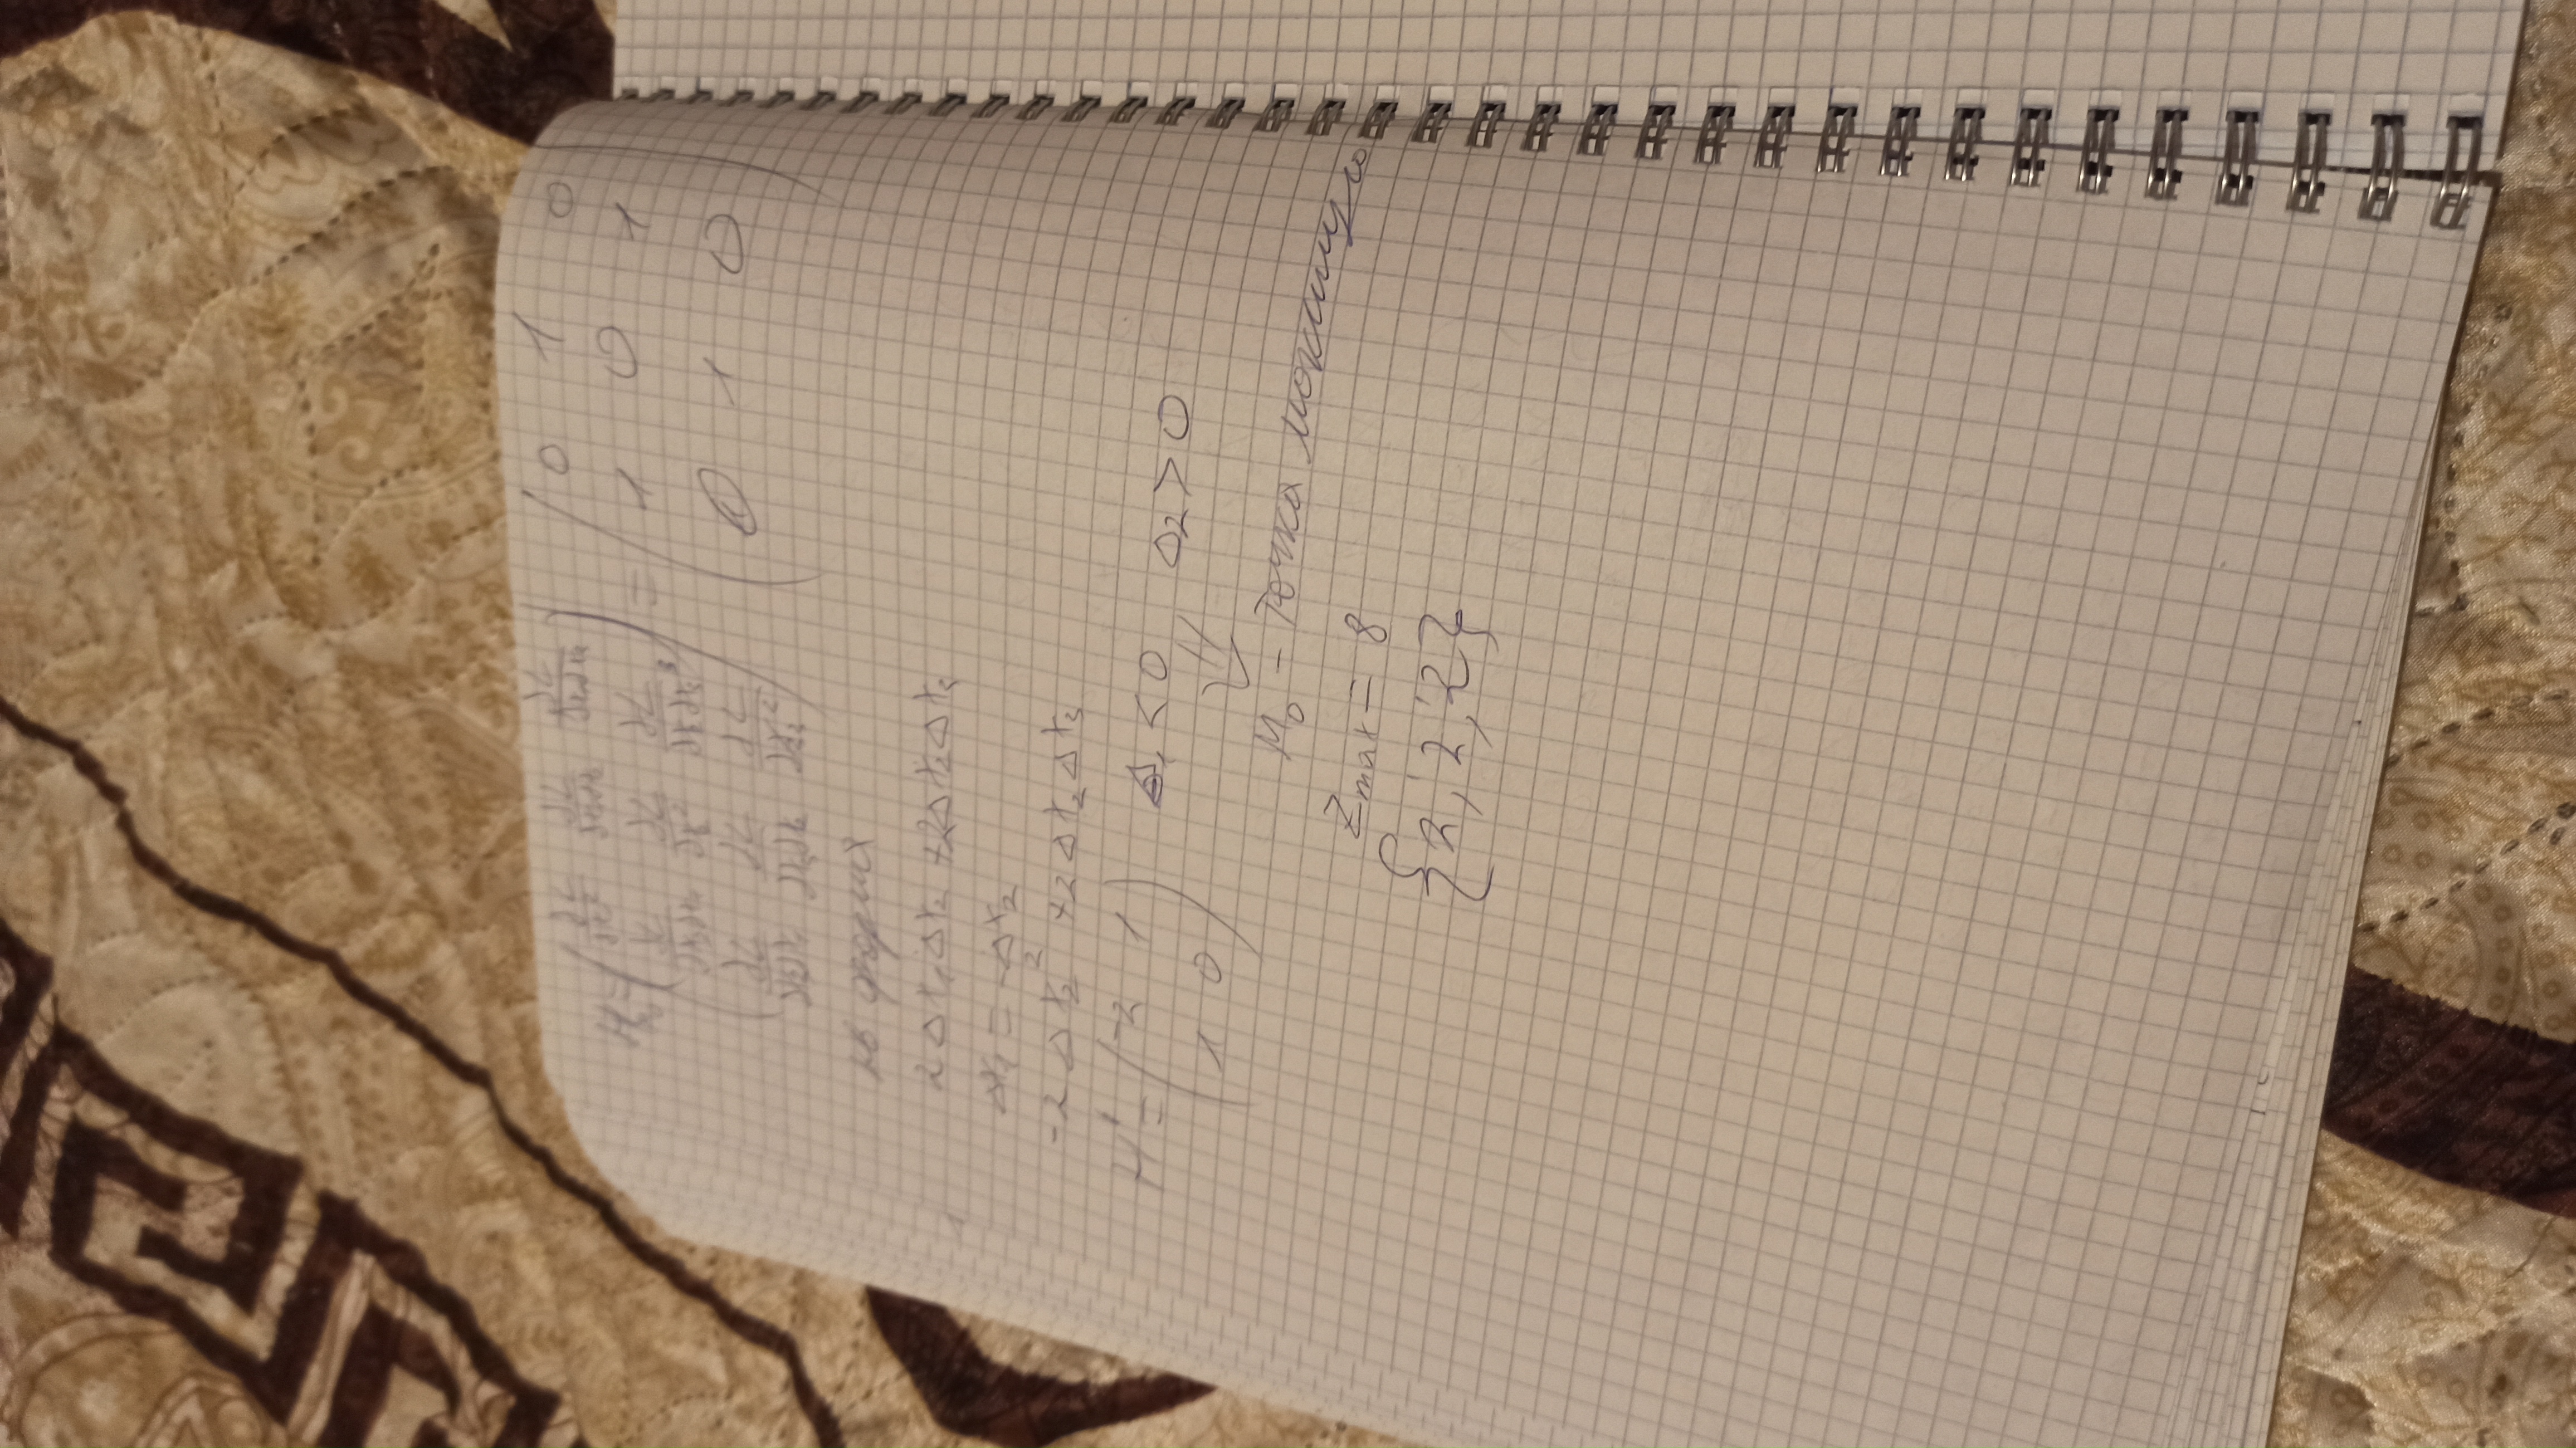 H₀ = (∂L/∂x₁² ∂L/∂x₁∂x₂ ∂L/∂x₁∂x₃) = (0 1 0)
(∂L/∂x₂∂x₁ ∂L/∂x₂² ∂L/∂x₂∂x₃) (1 0 1)
(∂L/∂x₃∂x₁ ∂L/∂x₃∂x₂ ∂L/∂x₃²) (0 1 0)
кв форма
2Δx₁Δx₂ +2Δx₂Δx₃
Δx₁ = -Δx₂
-2Δx₂² +2Δx₂Δx₃
H' = (-2 1) Δ₁<0 Δ₂>0
(1 0) ⇓
M₀ - точка максимума
Zmax = 8
{2, 2, 2}